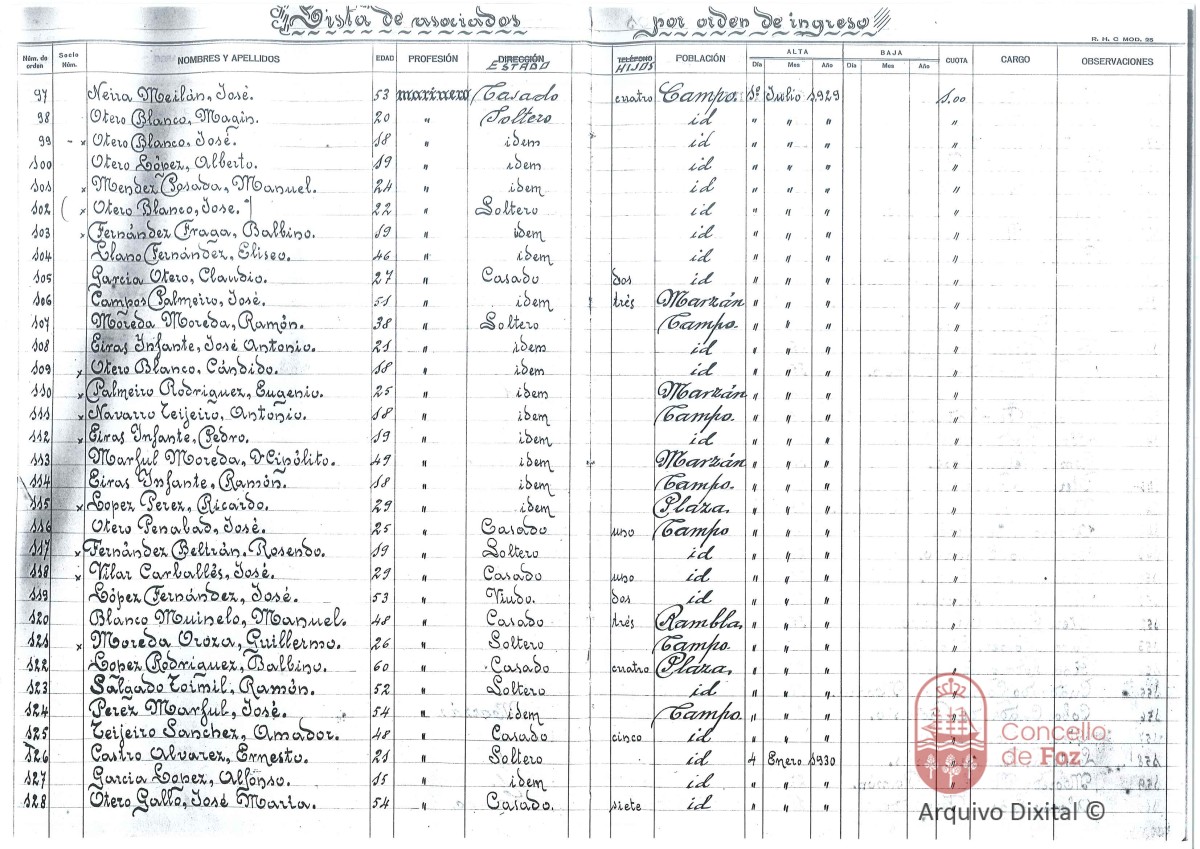 Lista de asociados por orden de ingreso
R. H. C MOD. 25
Núm. de orden Socio Núm. NOMBRES Y APELLIDOS EDAD PROFESIÓN DIRECCIÓN ESTADO TELÉFONO HIJOS POBLACIÓN ALTA Día Mes Año BAJA Día Mes Año CUOTA CARGO OBSERVACIONES
97 Neira Meilán, José. 53 marinero Casado cuatro Campo. 1º Julio 1929 1.00
98 Otero Blanco, Magin. 20 " Soltero id " " " "
99 - x Otero Blanco, José. 18 " idem id " " " "
100 Otero López, Alberto. 19 " idem id " " " "
101 x Mendez Posada, Manuel. 24 " idem id " " " "
102 ( x Otero Blanco, Jose. 22 " Soltero id " " " "
103 x Fernández Fraga, Balbino. 19 " idem id " " " "
104 Llano Fernández, Eliseo. 46 " idem id " " " "
105 Garcia Otero, Claudio. 27 " Casado dos id " " " "
106 Campos Palmeiro, José. 51 " idem trés Marzán " " " "
107 Moreda Moreda, Ramón. 38 " Soltero Campo. " " " "
108 Eiras Infante, José Antonio. 21 " idem id " " " "
109 x Otero Blanco, Cándido. 18 " idem id " " " "
110 x Palmeiro Rodriguez, Eugenio. 25 " idem Marzán " " " "
111 x Navarro Teijeiro, Antonio. 18 " idem Campo. " " " "
112 x Eiras Infante, Pedro. 19 " idem id " " " "
113 Marful Moreda, Hipólito. 49 " idem Marzán " " " "
114 Eiras Infante, Ramón. 18 " idem Campo. " " " "
115 x Lopez Perez, Ricardo. 29 " idem Plaza. " " " "
116 Otero Penabad, José. 25 " Casado uno Campo " " " "
117 x Fernández Beltrán. Rosendo. 19 " Soltero id " " " "
118 x Vilar Carballés, José. 29 " Casado uno id " " " "
119 López Fernández, José. 53 " Viudo. dos id " " " "
120 Blanco Muinelo, Manuel. 48 " Casado trés Rambla. " " " "
121 x Moreda Oroza, Guillermo. 26 " Soltero Campo. " " " "
122 Lopez Rodriguez, Balbino. 60 " Casado cuatro Plaza. " " " "
123 Salgado Toimil, Ramón. 52 " Soltero id " " " "
124 Perez Marful, José. 54 " idem Campo. " " " "
125 Teijeiro Sanchez, Amador. 48 " Casado cinco id " " " "
126 Castro Alvarez, Ernesto. 21 " Soltero id 4 Enero 1930 "
127 Garcia Lopez, Alfonso. 15 " idem id " " " "
128 Otero Gallo, José Maria. 54 " Casado. siete id " " " "
Concello de Foz
Arquivo Dixital ©